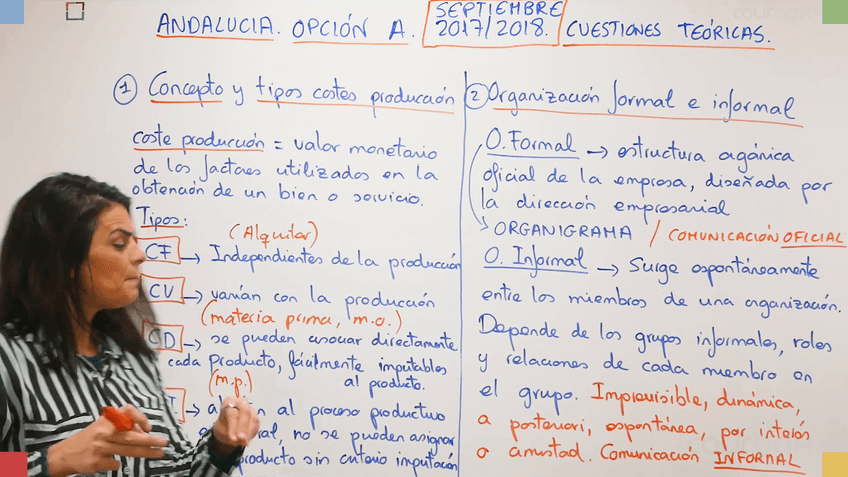 ANDALUCIA. OPCIÓN A. SEPTIEMBRE 2017/2018. CUESTIONES TEÓRICAS.
① Concepto y tipos costes producción
coste producción = valor monetario
de los factores utilizados en la
obtención de un bien o servicio.
Tipos:
(Alquiler)
CF → Independientes de la producción
CV → varían con la producción
(materia prima, m.o.)
CD → se pueden asociar directamente
cada producto, fácilmente imputables
(m.p.) al producto.
→ al proceso productivo
no se pueden asignar
producto sin criterio imputación
② Organización formal e informal
O. Formal → estructura orgánica
oficial de la empresa, diseñada por
la dirección empresarial
→ ORGANIGRAMA / COMUNICACIÓN OFICIAL
O. Informal → Surge espontáneamente
entre los miembros de una organización.
Depende de los grupos informales, roles
y relaciones de cada miembro en
el grupo. Imprevisible, dinámica,
a posteriori, espontánea, por interés
o amistad. Comunicación INFORMAL